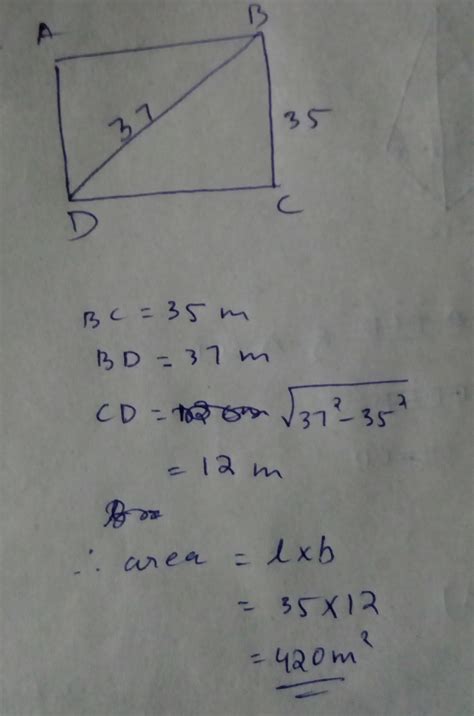 A
B
37
35
D
C
BC = 35 m
BD = 37 m
CD = √37² - 35²
= 12 m
∴ area = l x b
= 35 x 12
= 420 m²